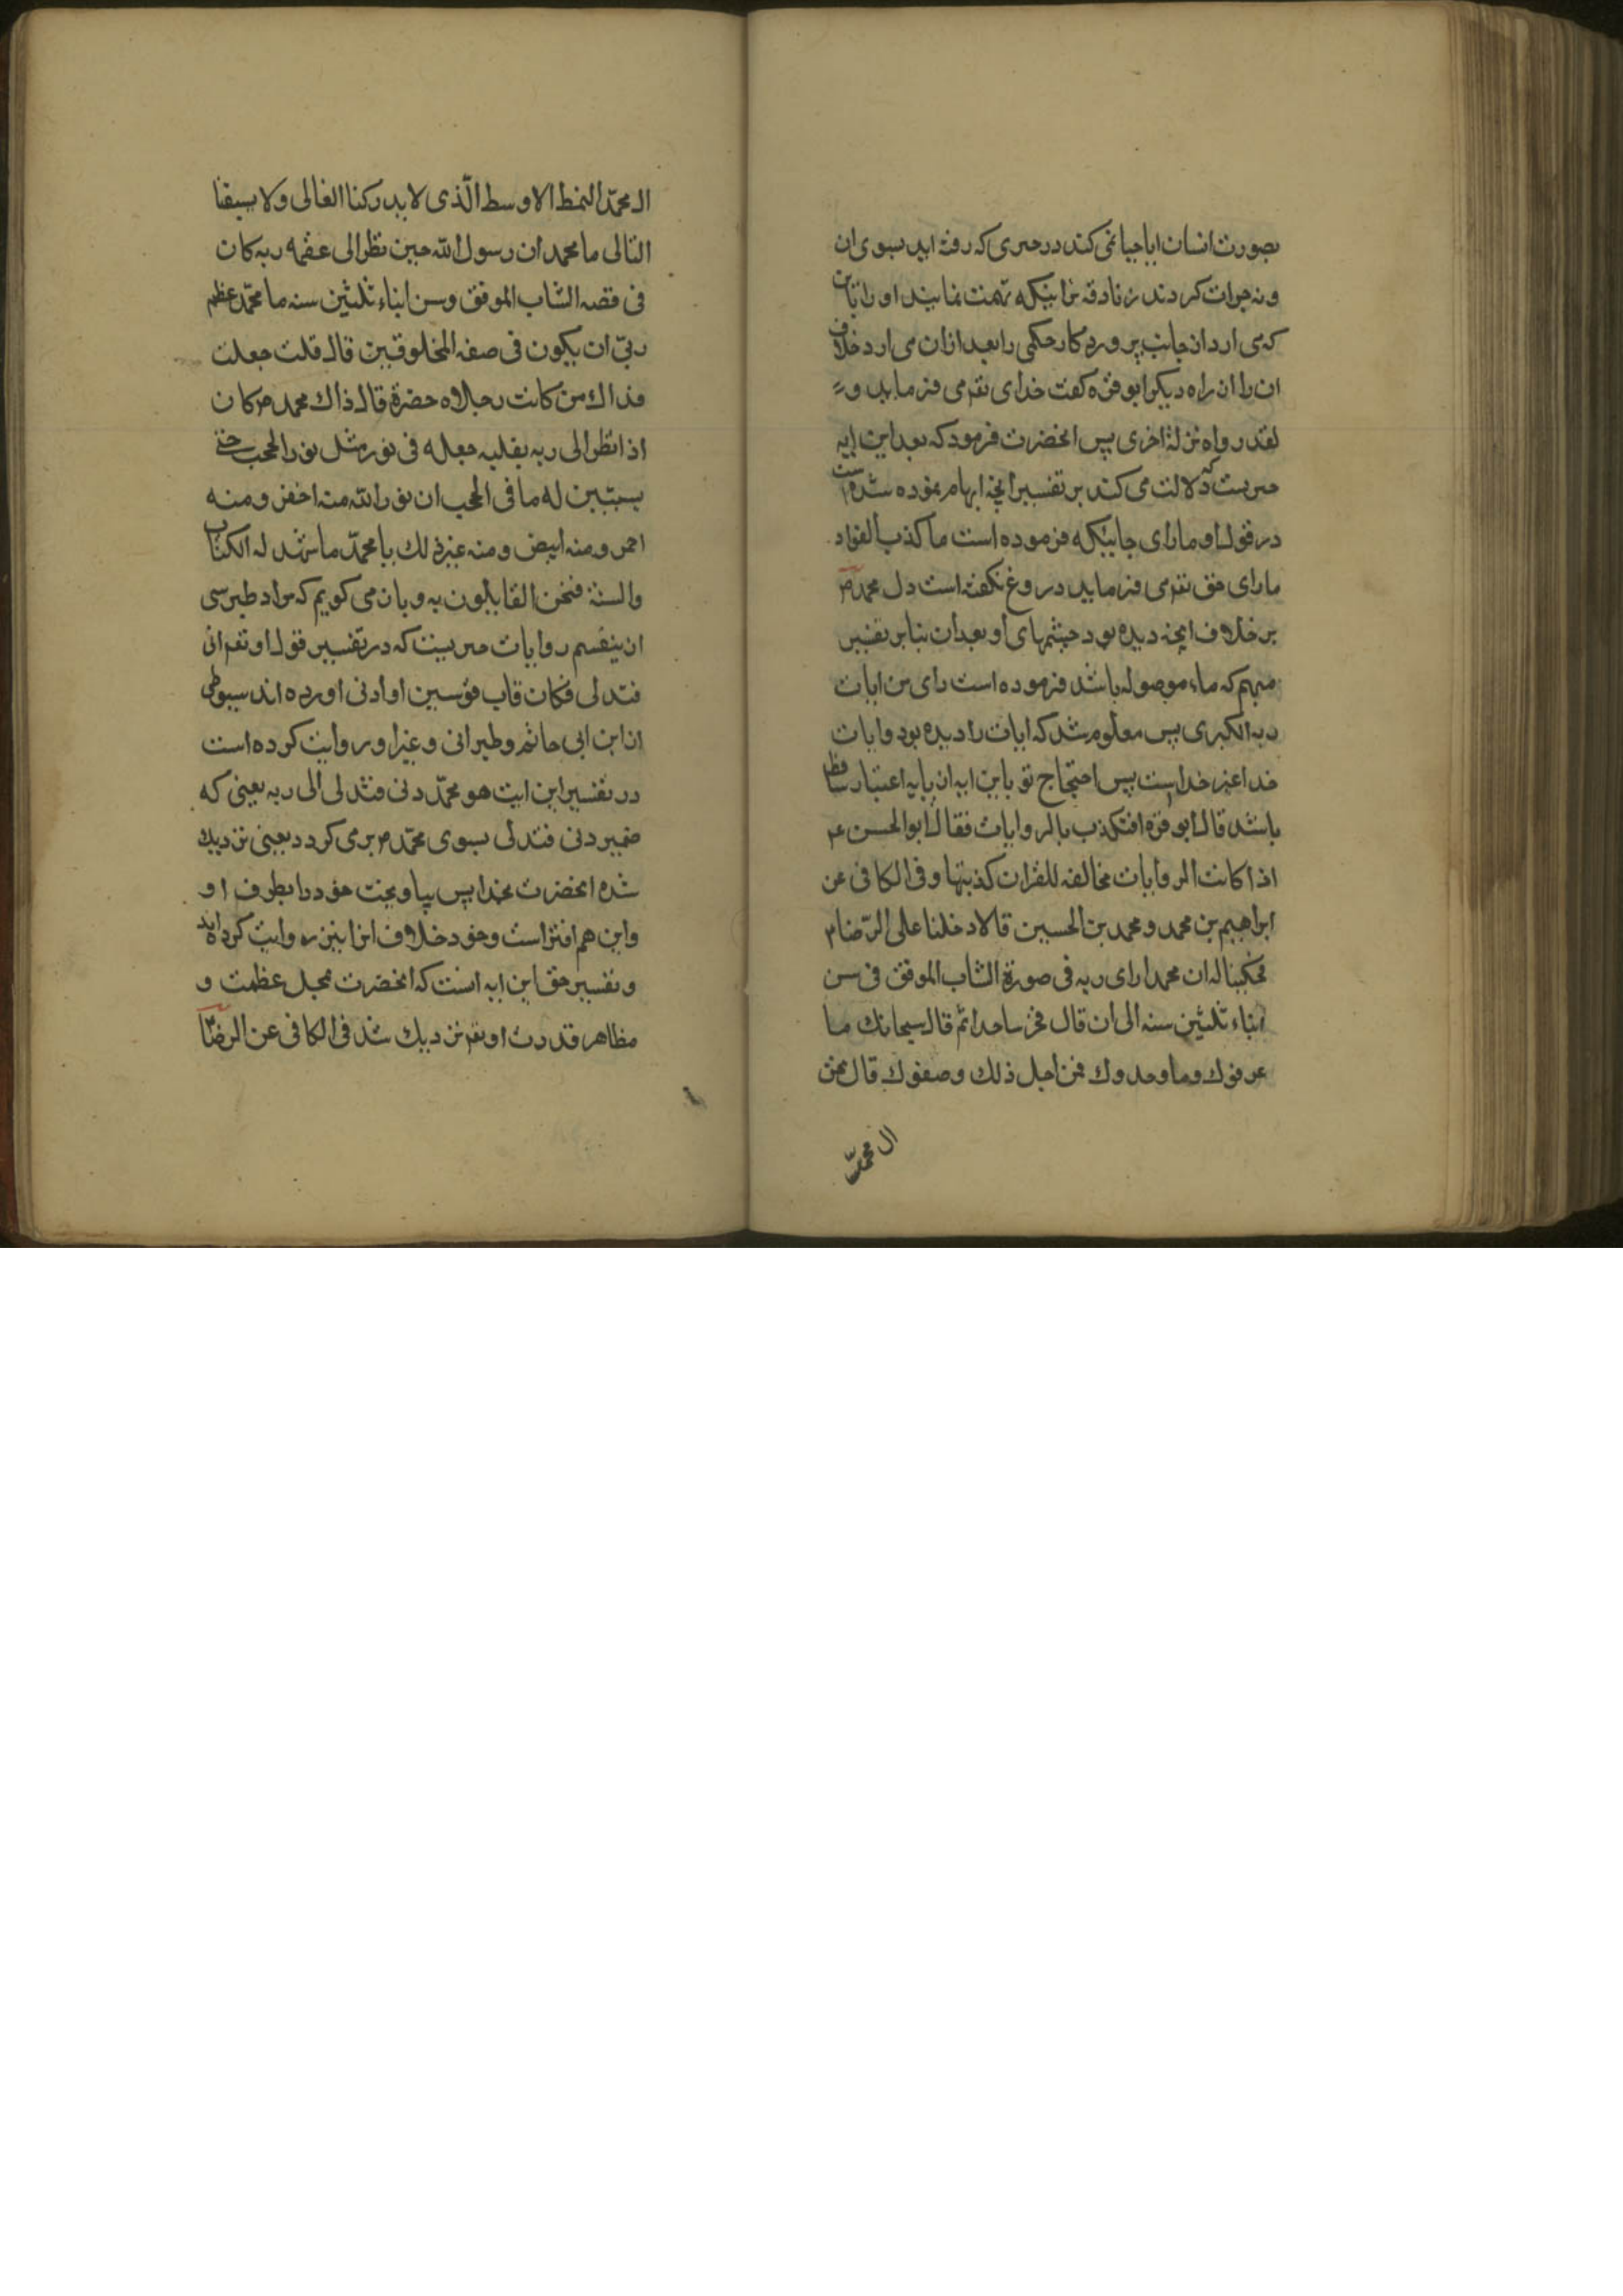 بصورت انسان ایا حیا نمی کند در حدیثی که رفته اید بسوی ان
و نه جرات کردند زنادقه نماینکه تهمت نمایند او را باین
که می ارد از جانب پروردکار حکمی را بعد ازان می ارد خلاف
ان را از راه دیکر ابو قره کفت خدای تعم می فرماید و
لقد رواه نزلة اخری پس انحضرت فرمود که بعد این ایه
که دلالت می کند بر تفسیر انچه ابهام نموده شده است
در قول او ما رای جاینکه فرموده است ما کذب الفواد
ما رای حق تعم می فرماید دروغ نکفته است دل محمد ص
بر خلاف انچه دیده بود چشمهای او بعد ان بنا بر تفسیر
مبهم که ماء موصوله باشد فرموده است رای من ایات
ربه الکبری پس معلوم شد که ایات را دیده بود و ایات
خدا غیر خداست پس احتجاج تو باین ایه از پایه اعتبار ساقط
باشد قال ابو قره افتکذب بالروایات فقال ابو الحسن ع
اذا کانت الروایات مخالفه للقران کذبتها و فی الکافی عن
ابراهیم بن محمد و محمد بن الحسین قالا دخلنا علی الرّضا ع
فحکینا له ان محمدا رای ربه فی صورة الشاب الموفق فی سن
ابناء ثلثین سنه الی ان قال فخر ساجدا ثم قال سبحانک ما
عرفوک و ما وحدوک فمن اجل ذلک وصفوک قال نحن
ال محمّد
ال محمّد النمط الاوسط الّذی لا یدرکنا الغالی و لا یسبقنا
التالی یا محمد ان رسول الله حین نظر الی عظمه ربه کان
فی قصه الشاب الموفق و سن ابناء ثلثین سنه یا محمّد عظم
ربّی ان یکون فی صفه المخلوقین قال قلت جعلت
فداک من کانت رجلاه حضرة قال ذاک محمد ص کان
اذا نظر الی ربه بقلبه جعله فی نور مثل نور الحجب حتی
یستبین له ما فی الحجب ان نور الله منه اخضر و منه
احمر و منه ابیض و منه غیر ذلک یا محمّد ما شهد له الکتاب
والسنة فنحن القایلون به و بان می کویم که مراد طبرسی
ازینقسم روایات حدیثیست که در تفسیر قول او تعم انی
فتدلی فکان قاب قوسین او ادنی اورده اند سیوطی
از ابن ابی حاتم و طبرانی و غیر او روایت کرده است
در تفسیر این ایت هو محمّد دنی فتدلی الی ربه یعنی که
ضمیر دنی فتدلی بسوی محمّد ص بر می کردد یعنی نزدیک
شده انحضرت بخدا پس بیاویخت خود را بطرف او
واین هم افتراست وخود خلاف انرا نیز روایت کرده اند
و تفسیر حق این ایه انست که انحضرت بمحل عظمت و
مظاهر قدرت او تعم نزدیک شد فی الکافی عن الرضا ع